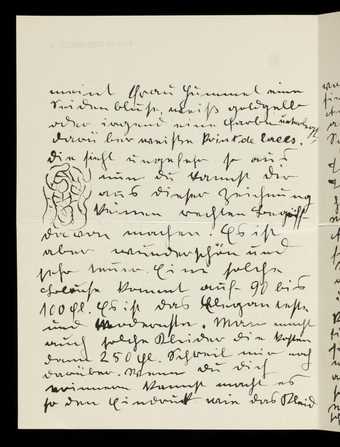 meint Frau Hummel eine
Seidenbluse, weiß goldgelb
oder irgend eine Farbe unterlegt
darüber weiße Point de laces.
die sieht ungefähr so aus
nun du kannst dir
aus dieser Zeichnung
keinen rechten Begriff
davon machen. Es ist
aber wunderschön und
sehr teuer. Eine solche
Blouse kommt auf 90 bis
100 fl. Es ist das Eleganteste
und Modernste. Man macht
auch solche Kleider die kosten
dann 250 fl. Schreib mir noch
darüber. Wenn du dich
erinnern kannst macht es
so den Eindruck wie das Kleid